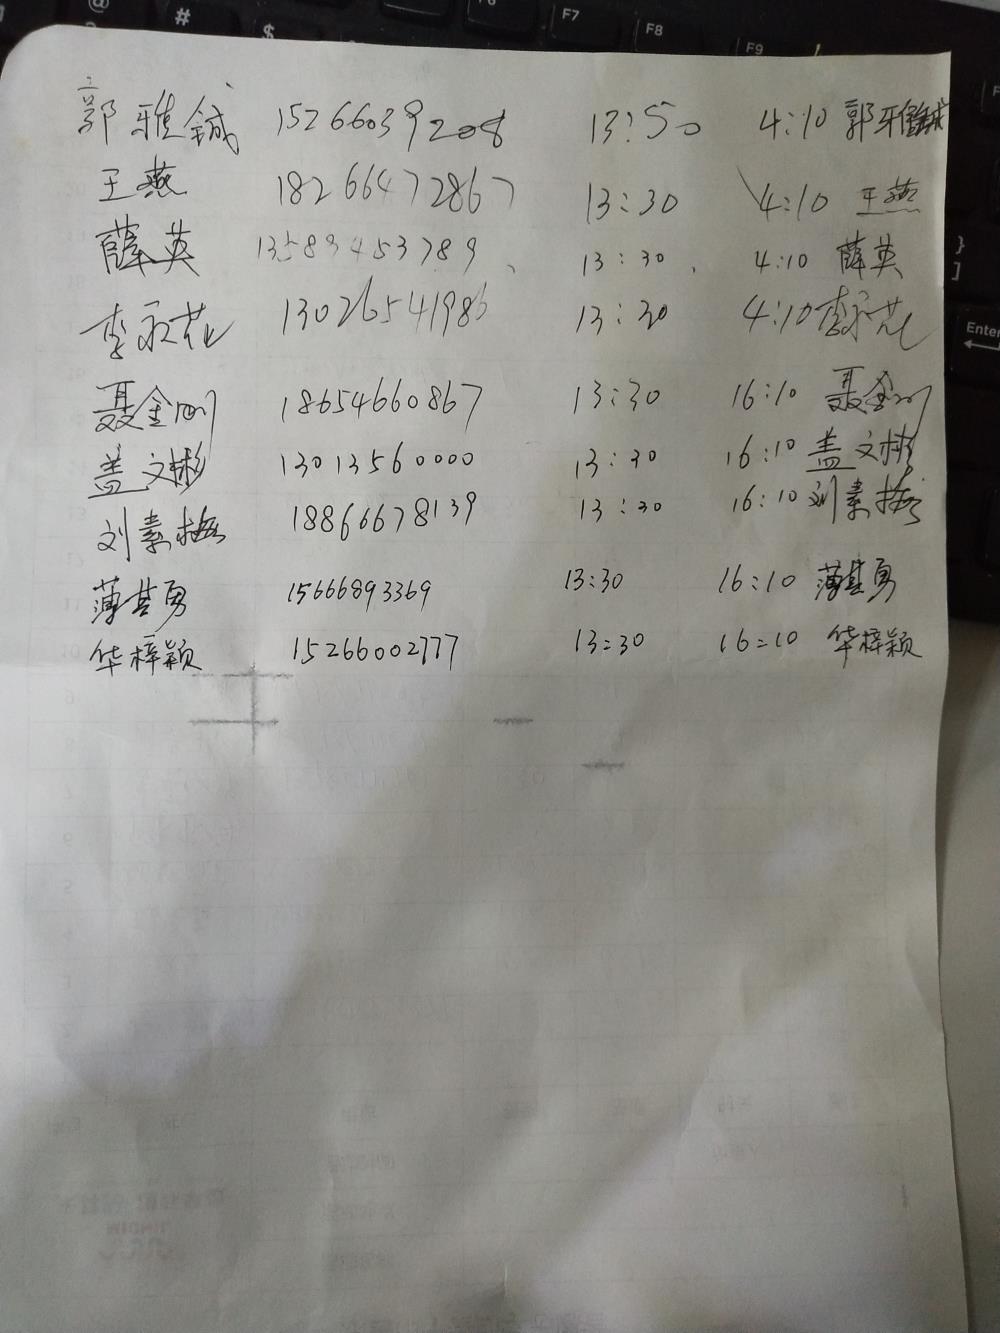 郭雅鋮 15266039208 13:50 4:10 郭雅鋮
王燕 18266472867 13:30 4:10 王燕
薛英 13589453789、 13:30、 4:10 薛英
李永花 13026541986 13:30 4:10 李永花
聂金刚 18654660867 13:30 16:10 聂金刚
盖文彬 13013560000 13:30 16:10 盖文彬
刘素梅 18866678139 13:30 16:10 刘素梅
薄其勇 15666893369 13:30 16:10 薄其勇
华梓颖 15266002777 13:30 16:10 华梓颖
@
#
$
F7
F8
F9
Enter